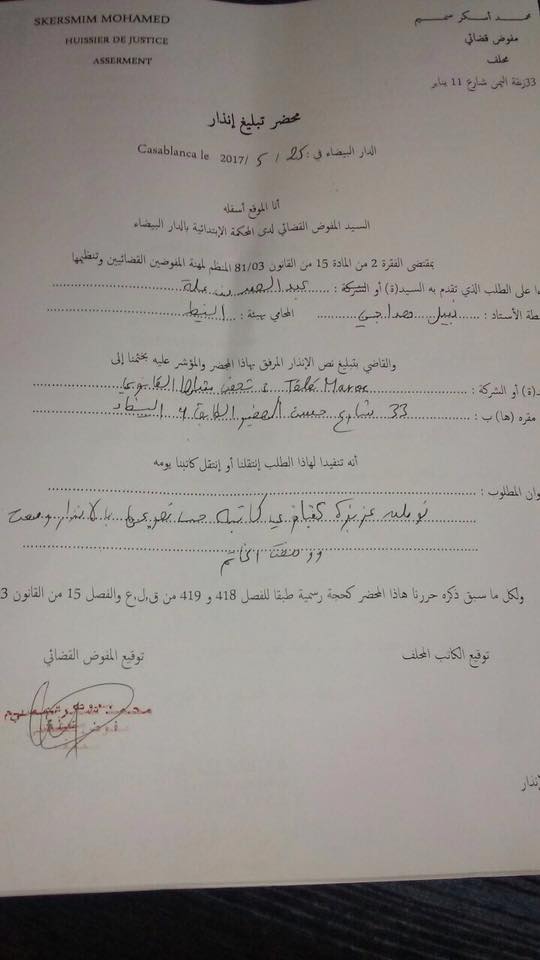 SKERSMIM MOHAMED
HUISSIER DE JUSTICE
ASSERMENT
محمد أسكر سميم
مفوض قضائي
محلف
33زنقة اليمن شارع 11 يناير
محضر تبليغ إنذار
الدار البيضاء في : 25 / 5 /2017 Casablanca le
أنا الموقع أسفله
السيد المفوض القضائي لدى المحكمة الإبتدائية بالدار البيضاء
بمقتضى الفقرة 2 من المادة 15 من القانون 81/03 المنظم لمهنة المفوضين القضائيين وتنظيمها
ءا على الطلب الذي تقدم به السيد(ة) أو الشركة : عبد الصمد
طة الأستاذ : نبيل المحامي بهيئة : البيضاء
والقاضي بتبليغ نص الإنذار المرفق بهاذا المحضر والمؤشر عليه بختمنا إلى
د(ة) أو الشركة : Télé Maroc في شخص ممثلها القانوني
مقره (ها) ب : 33 شارع الطابق البيضاء
أنه تنفيدا لهاذا الطلب إنتقلنا أو إنتقل كاتبنا يومه
وان المطلوب :
عزيزة كاتبة حسب تصريحها بالانذار
ووضعت الخاتم
ولكل ما سبق ذكره حررنا هاذا المحضر كحجة رسمية طبقا للفصل 418 و 419 من ق.ل.ع والفصل 15 من القانون 3
توقيع الكاتب المحلف
توقيع المفوض القضائي
إنذار